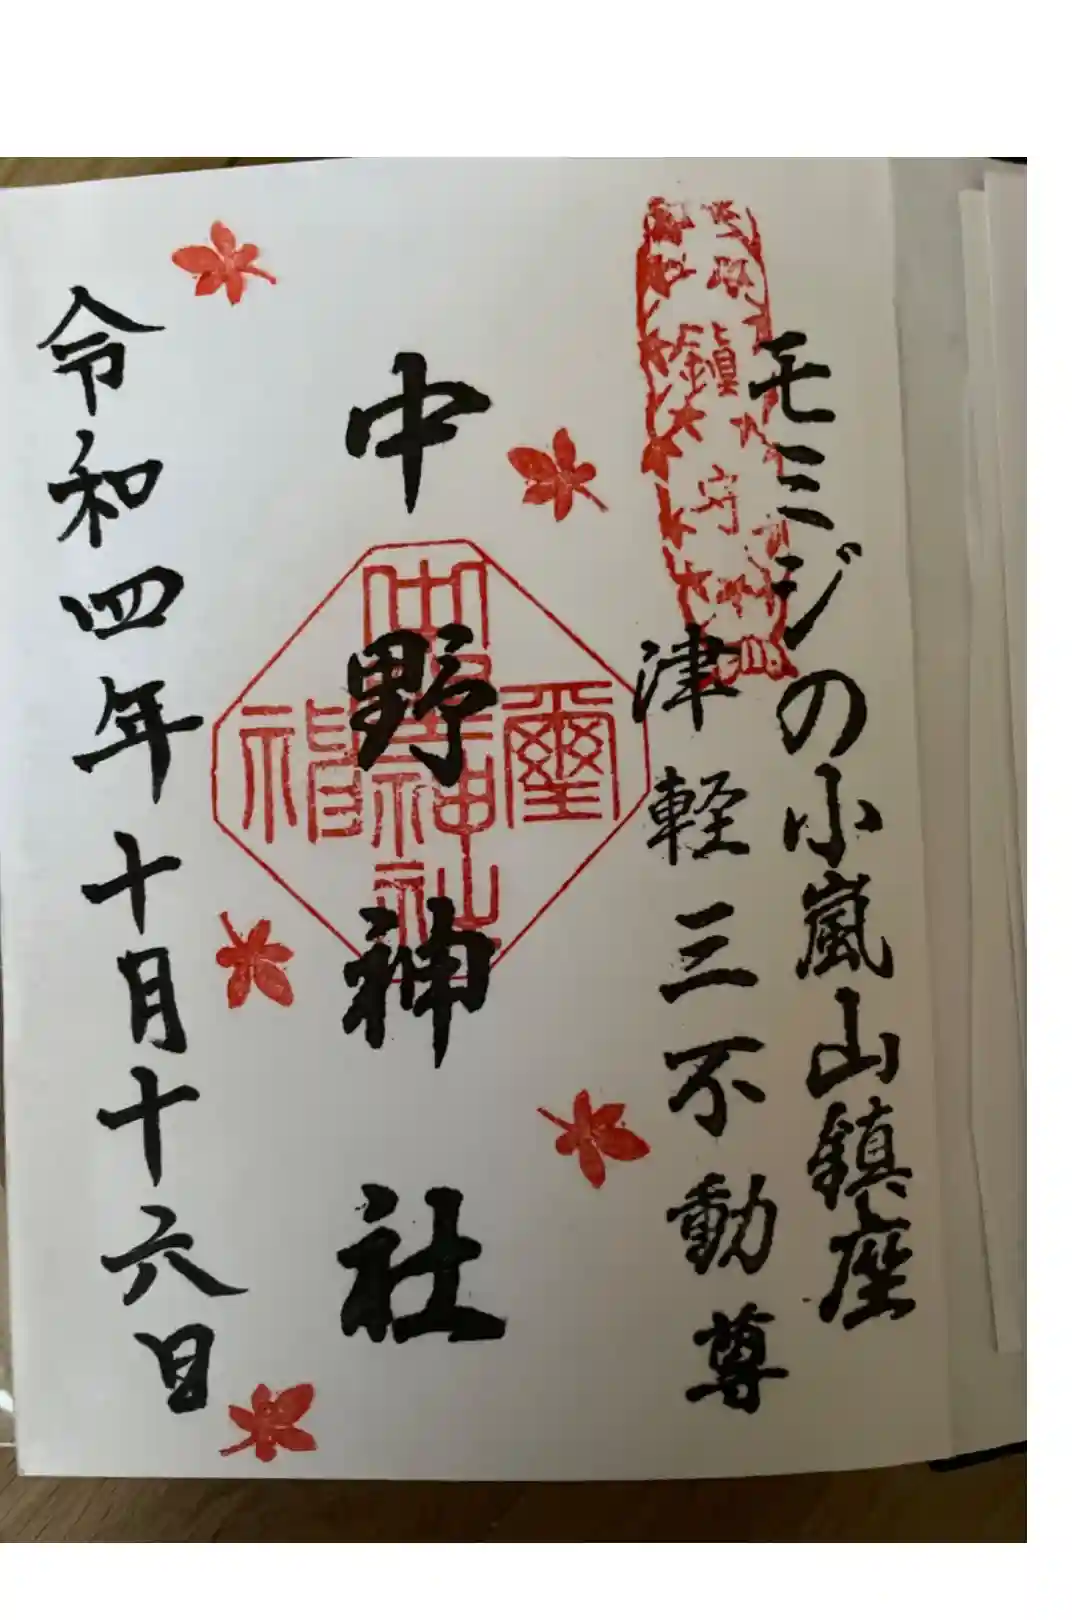 モミジの小嵐山鎮座
津軽三不動尊
鎮守
中野神社
中野神社
令和四年十月十六日